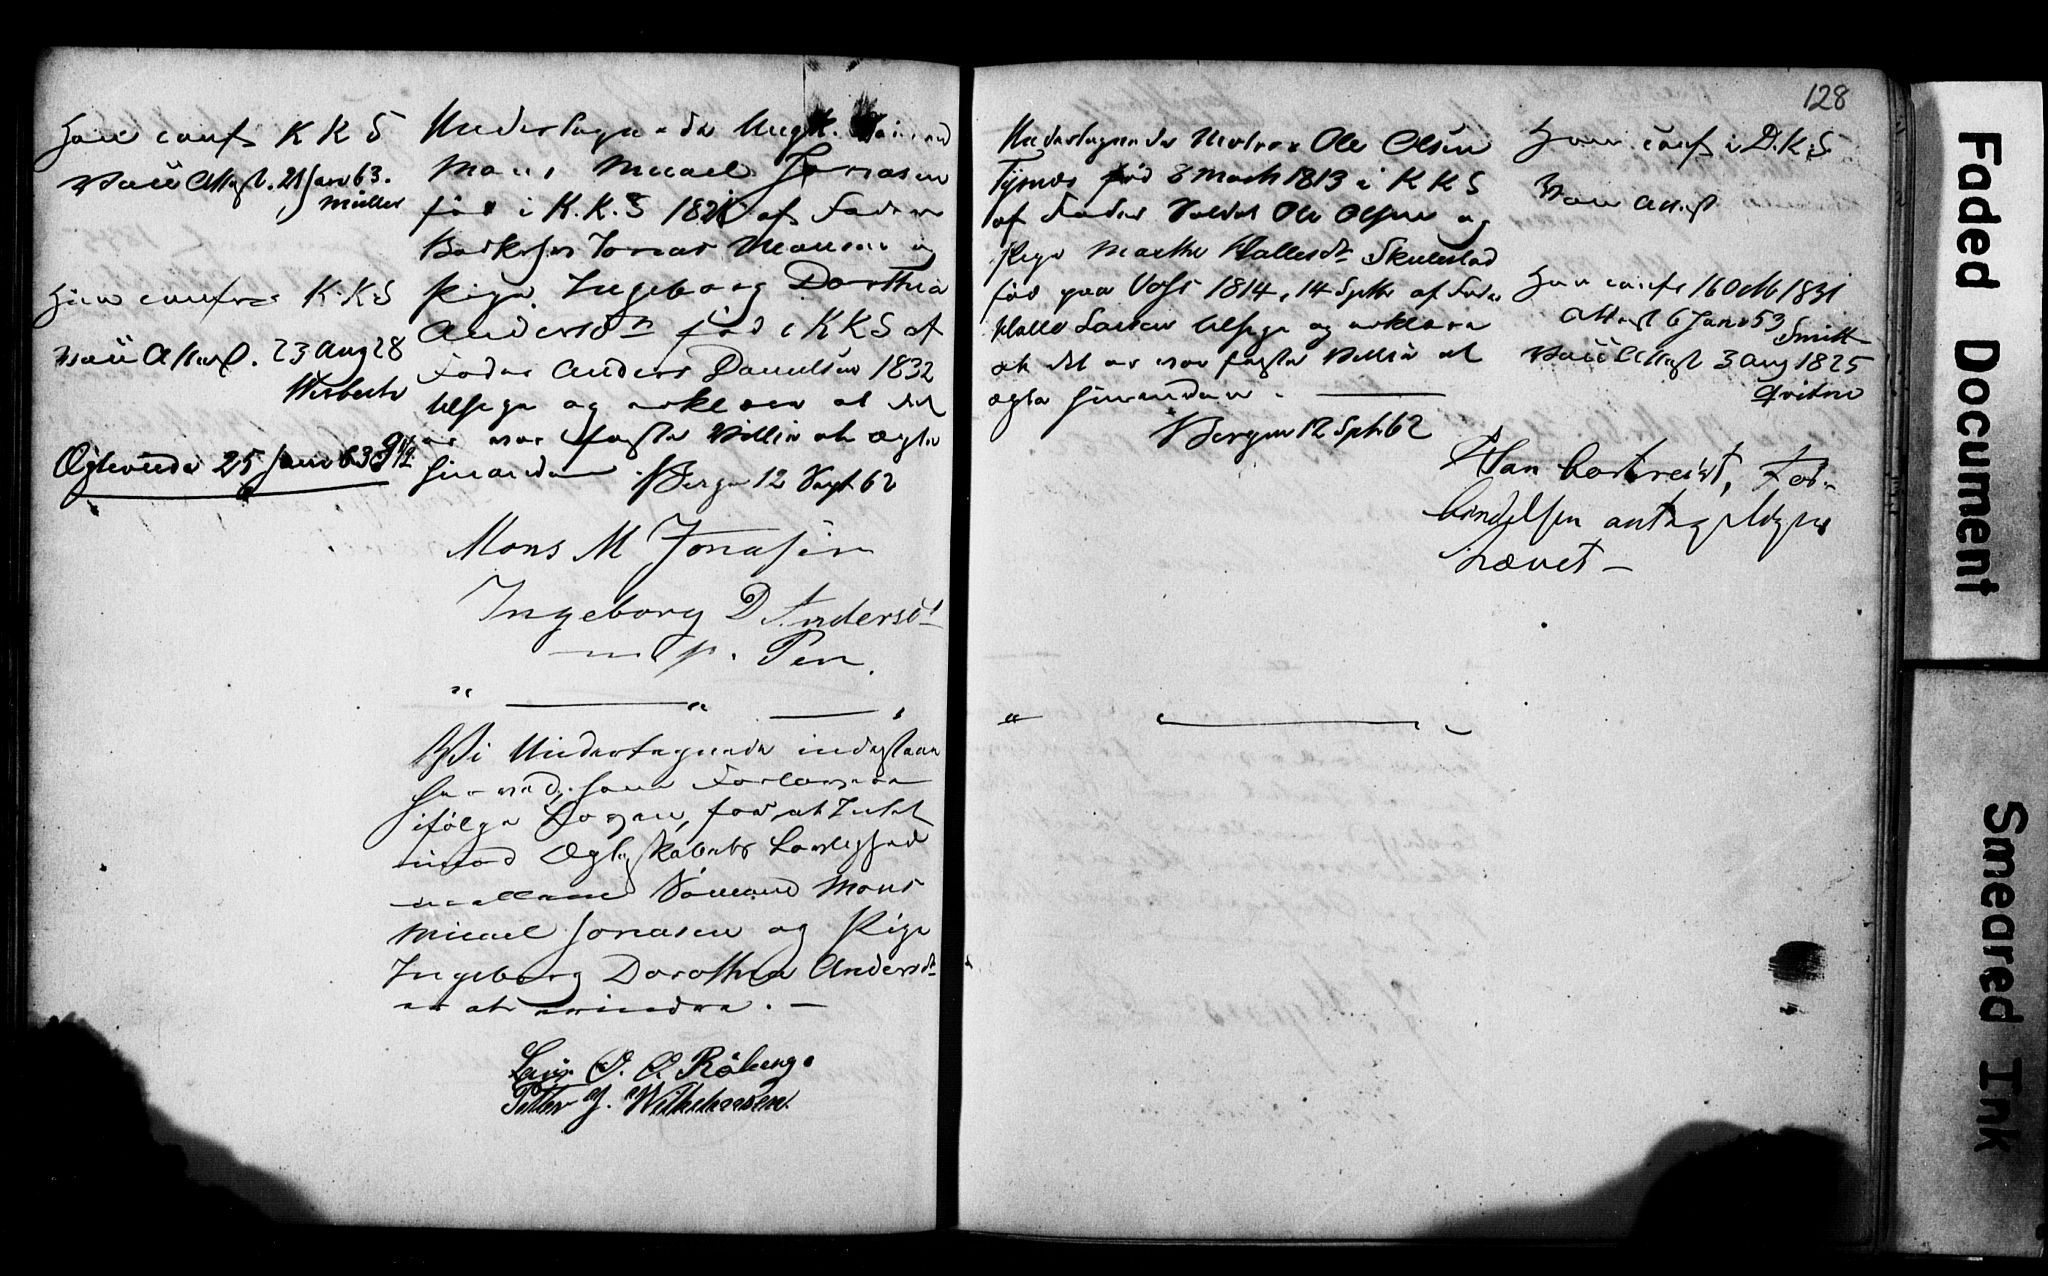 Han conf KKS
Vacc Attest. 21 Jan 63.
Müller
Hun confr KKS
Vacc Attest. 23 Aug 28
Wisbech
Ægteviede 25 Janv 63
Undertegnede Ungk. Sömand
Mons Micael Jonasen
föd i K.K.S af Fader
Jonas Monsen og
Pige Ingeborg Dorthea
Andersdr föd i KKS af
Fader Anders Danielsen 1832
tilsige og erklere at det
er vor faste Villie at ægte
hinanden. Bergen 12 Sept 62
Mons M Jonasen
Ingeborg D Andersdt
m. p. Pen.
Vi Undertegnede indestaae
herved, som Forlovere
ifölge Loven, for at Intet
imod Ægteskabets Lovlighed
mellem Sömand Mons
Micael Jonasen og Pige
Ingeborg Dorothea Andersdr
er at erindre. —
O. A. Röberg
Petter J. Wilhelmsen.
128
Undertegnede Matros Ole Olsen
Tysnes föd 8 Mach 1813 i KKS
af Fader Soldat Ole Olsen og
Pige Marthe Hallesdr Skulestad
föd paa Voss 1814, 14 Sptbr af Fader
Halle Larsen tilsige og erklere
at det er vor faste Villie at
ægte hinanden.
Bergen 12 Spt. 62
Han conf i D.K.S
Vacc Attest
Hun conf 16 Octb 1831
Attest 6 Janv 53 Smitt
Vacc Attest 3 Aug 1825
Han bortreist, For-
bindelsen antageligvis
hævet —
Faded Document
Smeared Ink